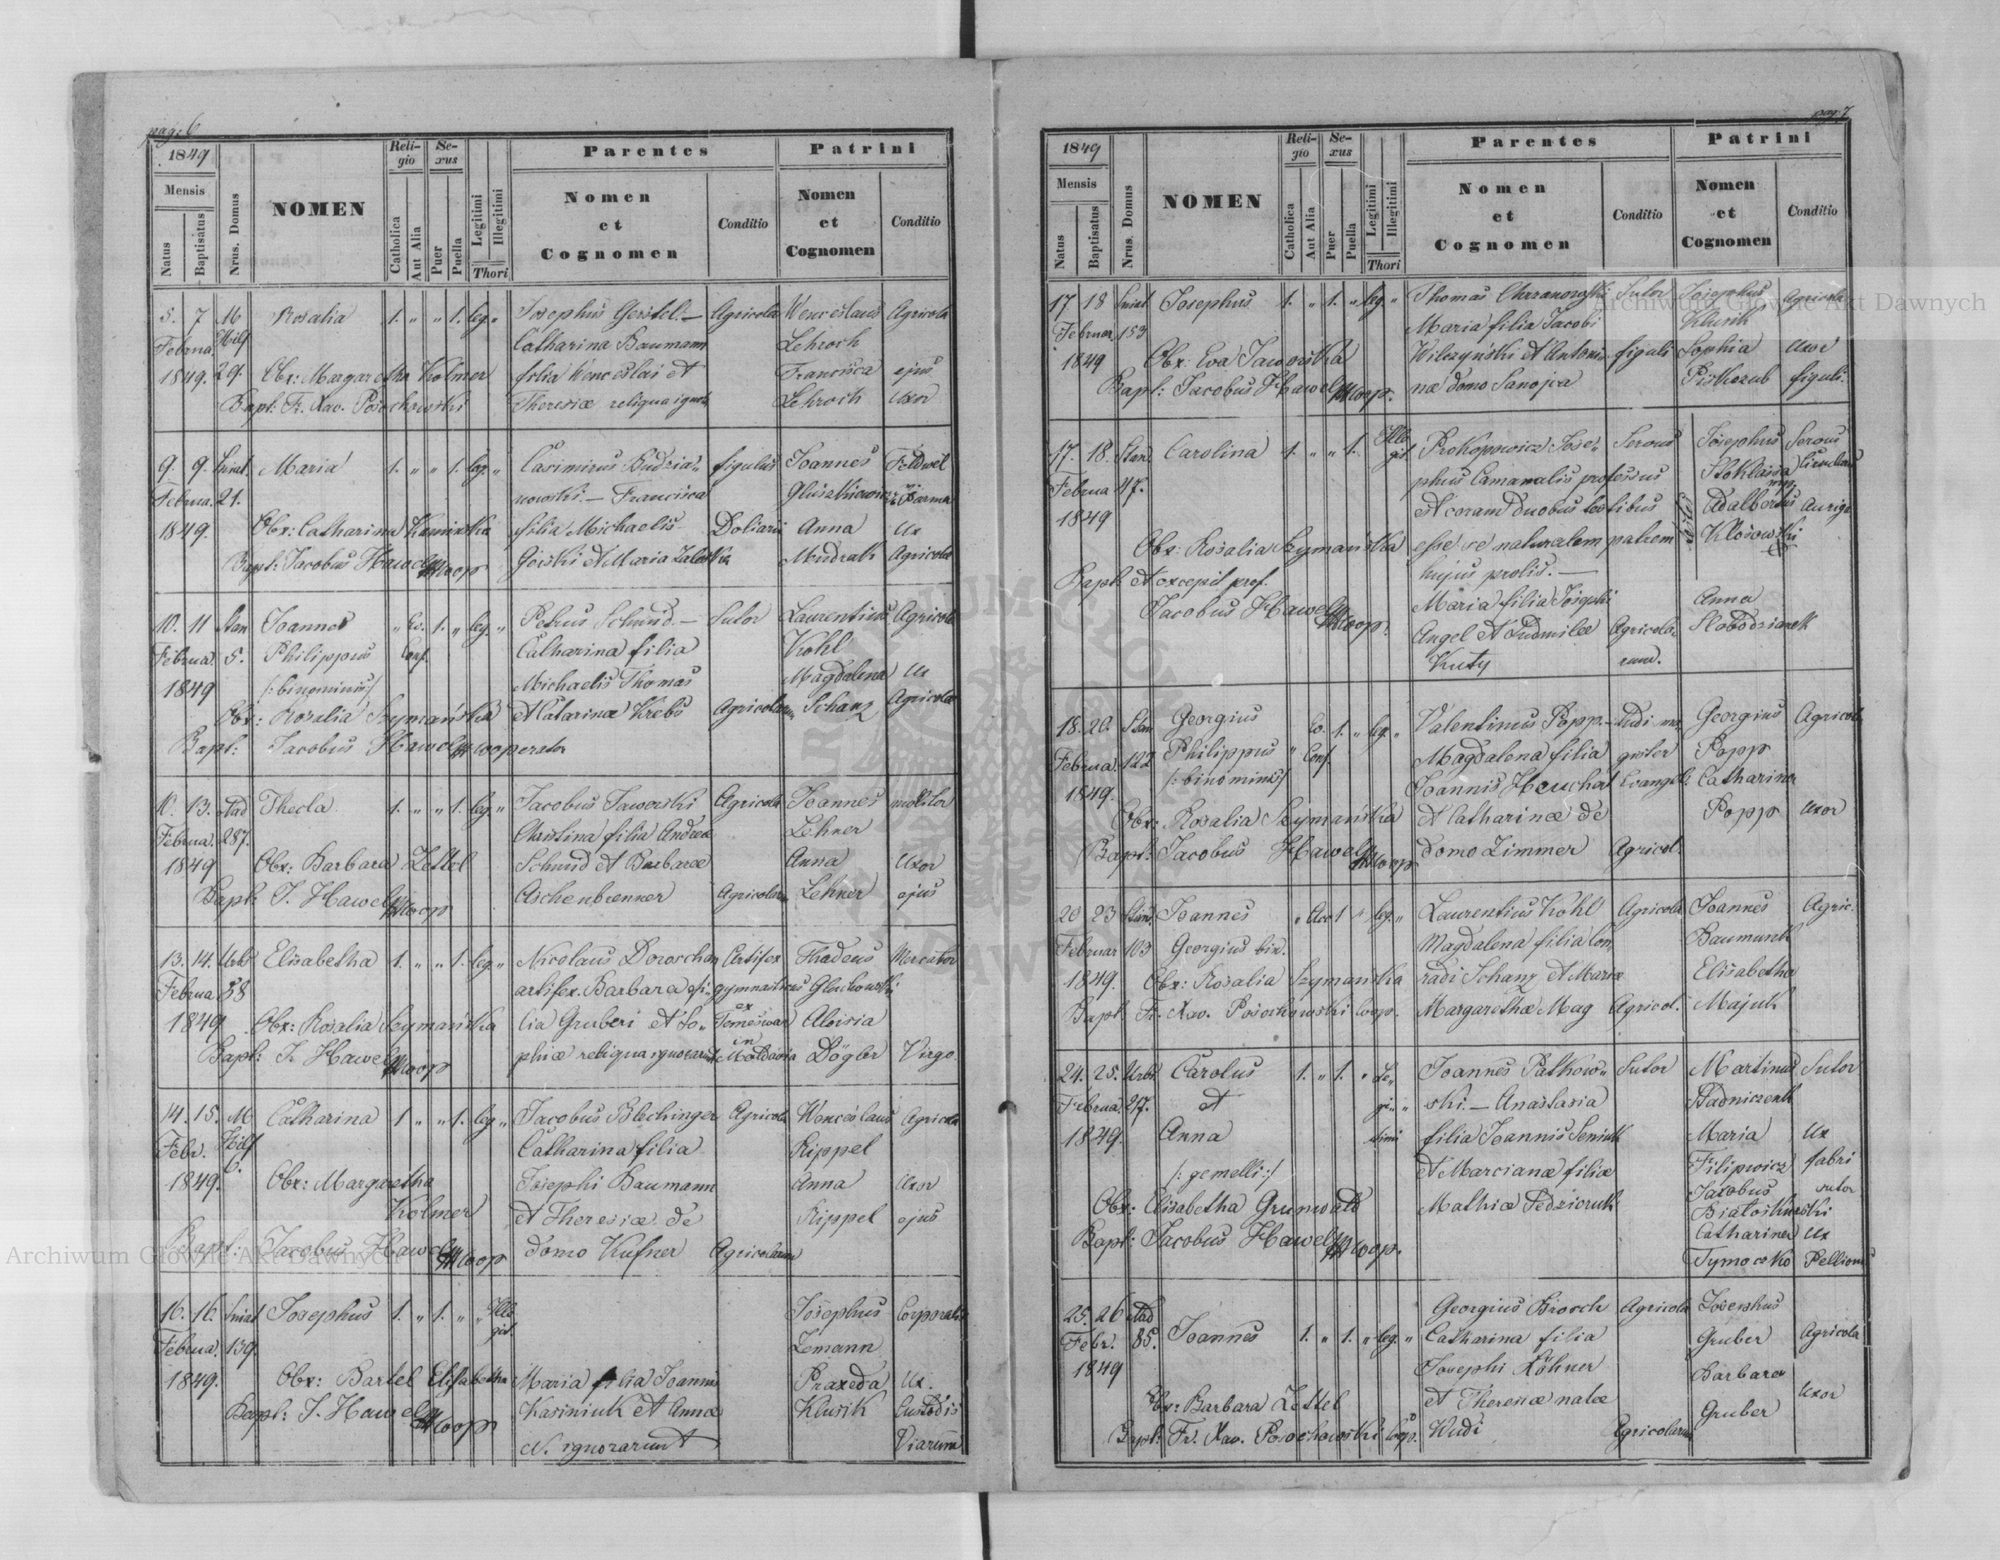 pag: 6
1849
Mensis
Natus
Baptisatus
Nrus. Domus
NOMEN
Religio
Catholica
Aut Alia
Sexus
Puer
Puella
Legitimi
Illegitimi
Thori
Parentes
Nomen
et
Cognomen
Conditio
Patrini
Nomen
et
Cognomen
Conditio
5. 7 M Rosalia 1. " " 1. leg. " Josephus Gerstel. — Agricola Wenceslaus Agricola
Februa. Hilf Catharina Baumann Lehroch
1849. 29. Obx: Margaretha Kolmer filia Wenceslai et Francisca ejus
Bapt: Fr. Xav. Posochowski Theresiæ reliqua ignor. Lehroch uxor
9. 9. Sniat Maria 1. " " 1. leg. " Casimirus Budzia„ figulus Joannes
Februa. 21. nowski. — Francisca
1849. Obx: Catharina Kaminska filia Michaelis Doliarii Anna Ux
Bapt: Jacobus Hawel Coop Gorski et Maria Zaleska Mudrak Agricola
10. 11 Stan Joannes " Ev. 1. " leg. " Petrus Schmid — Sutor Laurentius Agricola
Februa. 5. Philippus Conf. Catharina filia Kohl
1849 /: binominis/ Michaelis Thomas Magdalena Ux
Obx: Rosalia Szymańska et Catarinæ Krebs Agricolarum Schanz Agricolæ
Bapt: Jacobus Hawel Cooperator
10. 13. Mad Thecla 1. " " 1. leg. " Jacobus Jaworski Agricola Joannes molitor
Februa. 287. Christina filia Andreæ Lehner
1849 Obx: Barbara Zettel Schmid et Barbaræ Anna Uxor
Bapt J. Hawel Coop Aschenbrenner Agricolarum Lehner ejus
13. 14. Urbs Elisabetha 1. " " 1. leg. " Nicolaus Doroschan Artifex Thadeus Mercator
Februa. 58 artifex. Barbara fi„ gymnasticus Gluchowski
1849 Obx: Rosalia Szymańska lia Gruberi et So„ ex Temeswar Aloisia
Bapt: J. Hawel Coop phiæ reliqua ignorarunt in Moldavia Dögler Virgo
14. 15. M Catharina 1 " " 1. leg. " Jacobus Blechinger Agricola Wenceslaus Agricola
Febr. Hilf Catharina filia Rippel
1849. 6. Obx: Margaretha Josephi Baumann Anna Uxor
Kolmer et Theresiæ de Rippel ejus
Bapt: Jacobus Hawel Coop domo Kufner Agricolarum
16. 16. Sniat Josephus 1. " 1. " " Ille Josephus Corporalis
Februa. 139. git. Lemann
1849. Obx: Bartel Elisabetha Maria filia Joannis Praxeda Ux.
Bapt: J. Hawel Coop Kasiniuk et Annæ Klusik Custodis
N. ignorarunt Viarum
pag: 7
1849
Mensis
Natus
Baptisatus
Nrus. Domus
NOMEN
Religio
Catholica
Aut Alia
Sexus
Puer
Puella
Legitimi
Illegitimi
Thori
Parentes
Nomen
et
Cognomen
Conditio
Patrini
Nomen
et
Cognomen
Conditio
17 18 Sniat Josephus 1. " 1. " leg. " Thomas Chrzanowski Sutor Josephus Agricola
Februa. 153 Maria filia Jacobi Klusik
1849 Obx: Eva Jaworska Wilczyński et Antoni„ figuli Sophia Uxor
Bapt: Jacobus Hawel Coop. næ domo Sanojca Piskozub figuli.
17. 18. Stan Carolina 1. " " 1. Ille Prokoppowicz Jose„ Servus Josephus Servus
Februa 47. git phus Camaralis professus Stoklassa
1849 et coram duobus testibus testes Adalbertus Auriga
Obx: Rosalia Szymańska esse se naturalem patrem Kłosowski
Bapt. et excepit prof. hujus prolis. —
Jacobus Hawel Coop. Maria filia Josephi Anna
Angel et Ludmilæ Agricola„ Slobodzianek
Kuty rum.
18. 20. Stan Georgius Ev. 1. " leg. " Valentinus Popp — Ludi ma„ Georgius Agricola
Februa. 122 Philippus " Conf. Magdalena filia gister Popp
1849. /: binominis/ Joannis Heuchert Evangel: Catharina
Obx: Rosalia Szymańska et Catharinæ de Popp uxor
Bapt: Jacobus Hawel Coop domo Zimmer Agricol.
20 23 Stan. Joannes " 1 " leg. " Laurentius Kohl Agricola Joannes Agric.
Februar 103 Georgius bin. Magdalena filia Con„ Baumunk
1849. Obx: Rosalia Szymanska radi Schanz et Mariæ Elisabetha
Bapt Fr. Xav. Posochowski Coop. Margarethæ Mag Agricol. Majuk
24. 25. Urbs Carolus 1. " 1. " Le„ Joannes Patkow„ Sutor Martinus Sutor
Februa. 217. et gi„ " ski. — Anastasia Stadniczenk
1849. Anna timi filia Joannis Seniuk Maria Ux
/: gemelli :/ et Marcianæ filiæ Filipwicz fabri
Obx: Elisabetha Grunwald Mathiæ Fedzioruk Jacobus sutor
Bapt: Jacobus Hawel Coop. Białoskurski
Catharina Ux
Tymoczko Pellionis
25. 26 Mad Georgius Brosch Agricola Josephus
Febr. 85. Joannes 1. " 1. " leg. " Catharina filia Gruber Agricola
1849 Josephi Köhner Barbara
Obx: Barbara Zettel et Theresiæ natæ Gruber Uxor
Bapt: Fr. Xav. Posochowski Coop. Wudi Agricolarum
Archiwum Główne Akt Dawnych
Archiwum Główne Akt Dawnych